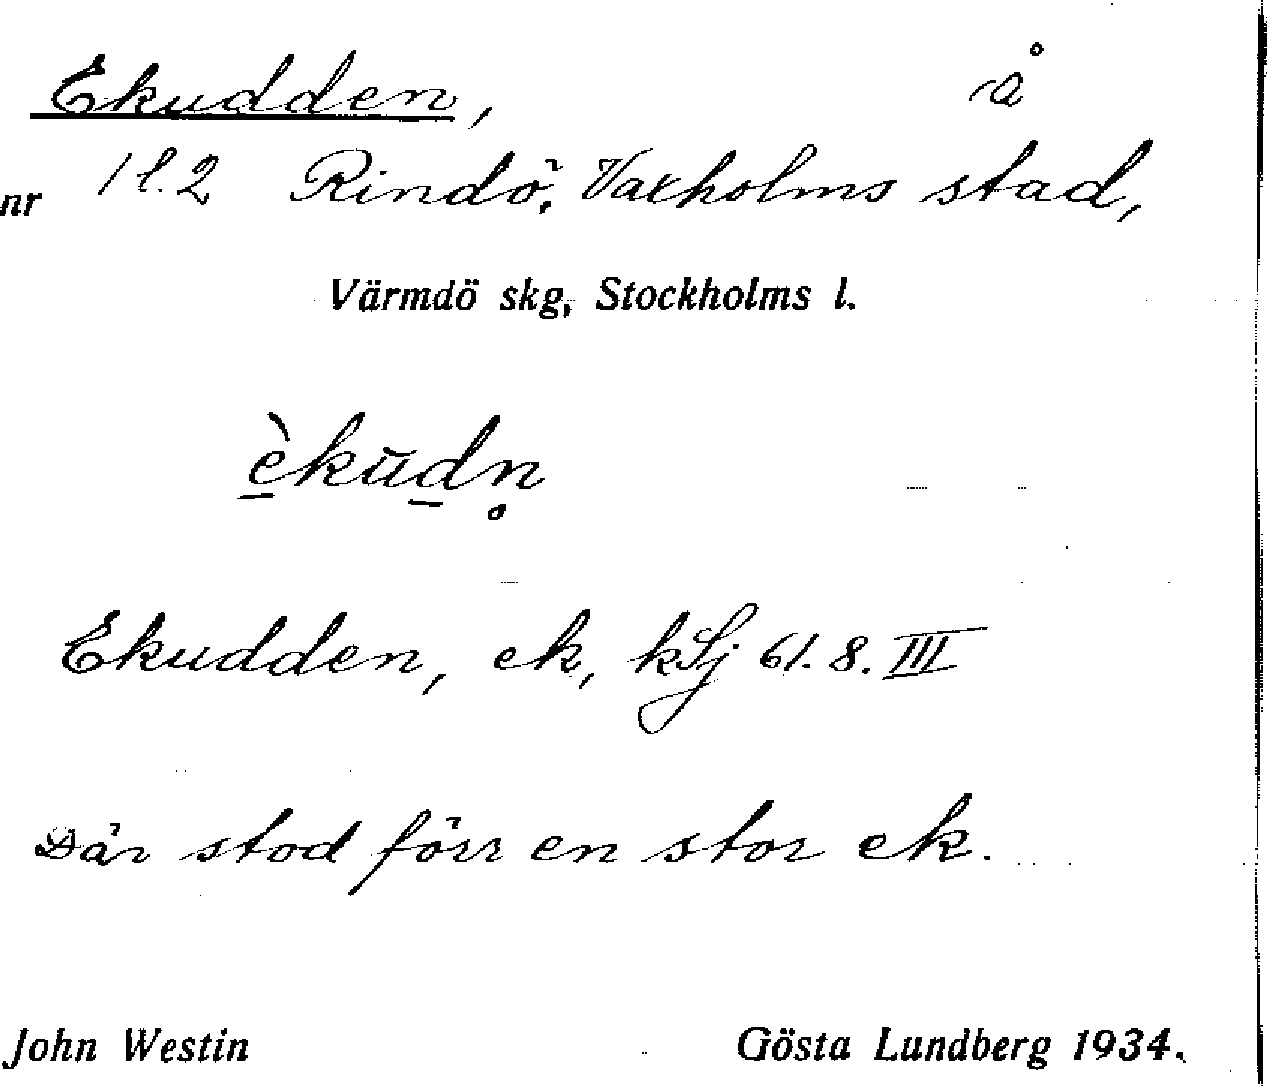 Ekudden, å
nr 1 l. 2 Rindö, Vaxholms stad,
Värmdö skg, Stockholms l.
èkŭdn̥
Ekudden, ek, kSj 61. 8. III
Där stod förr en stor ek.
John Westin Gösta Lundberg 1934.